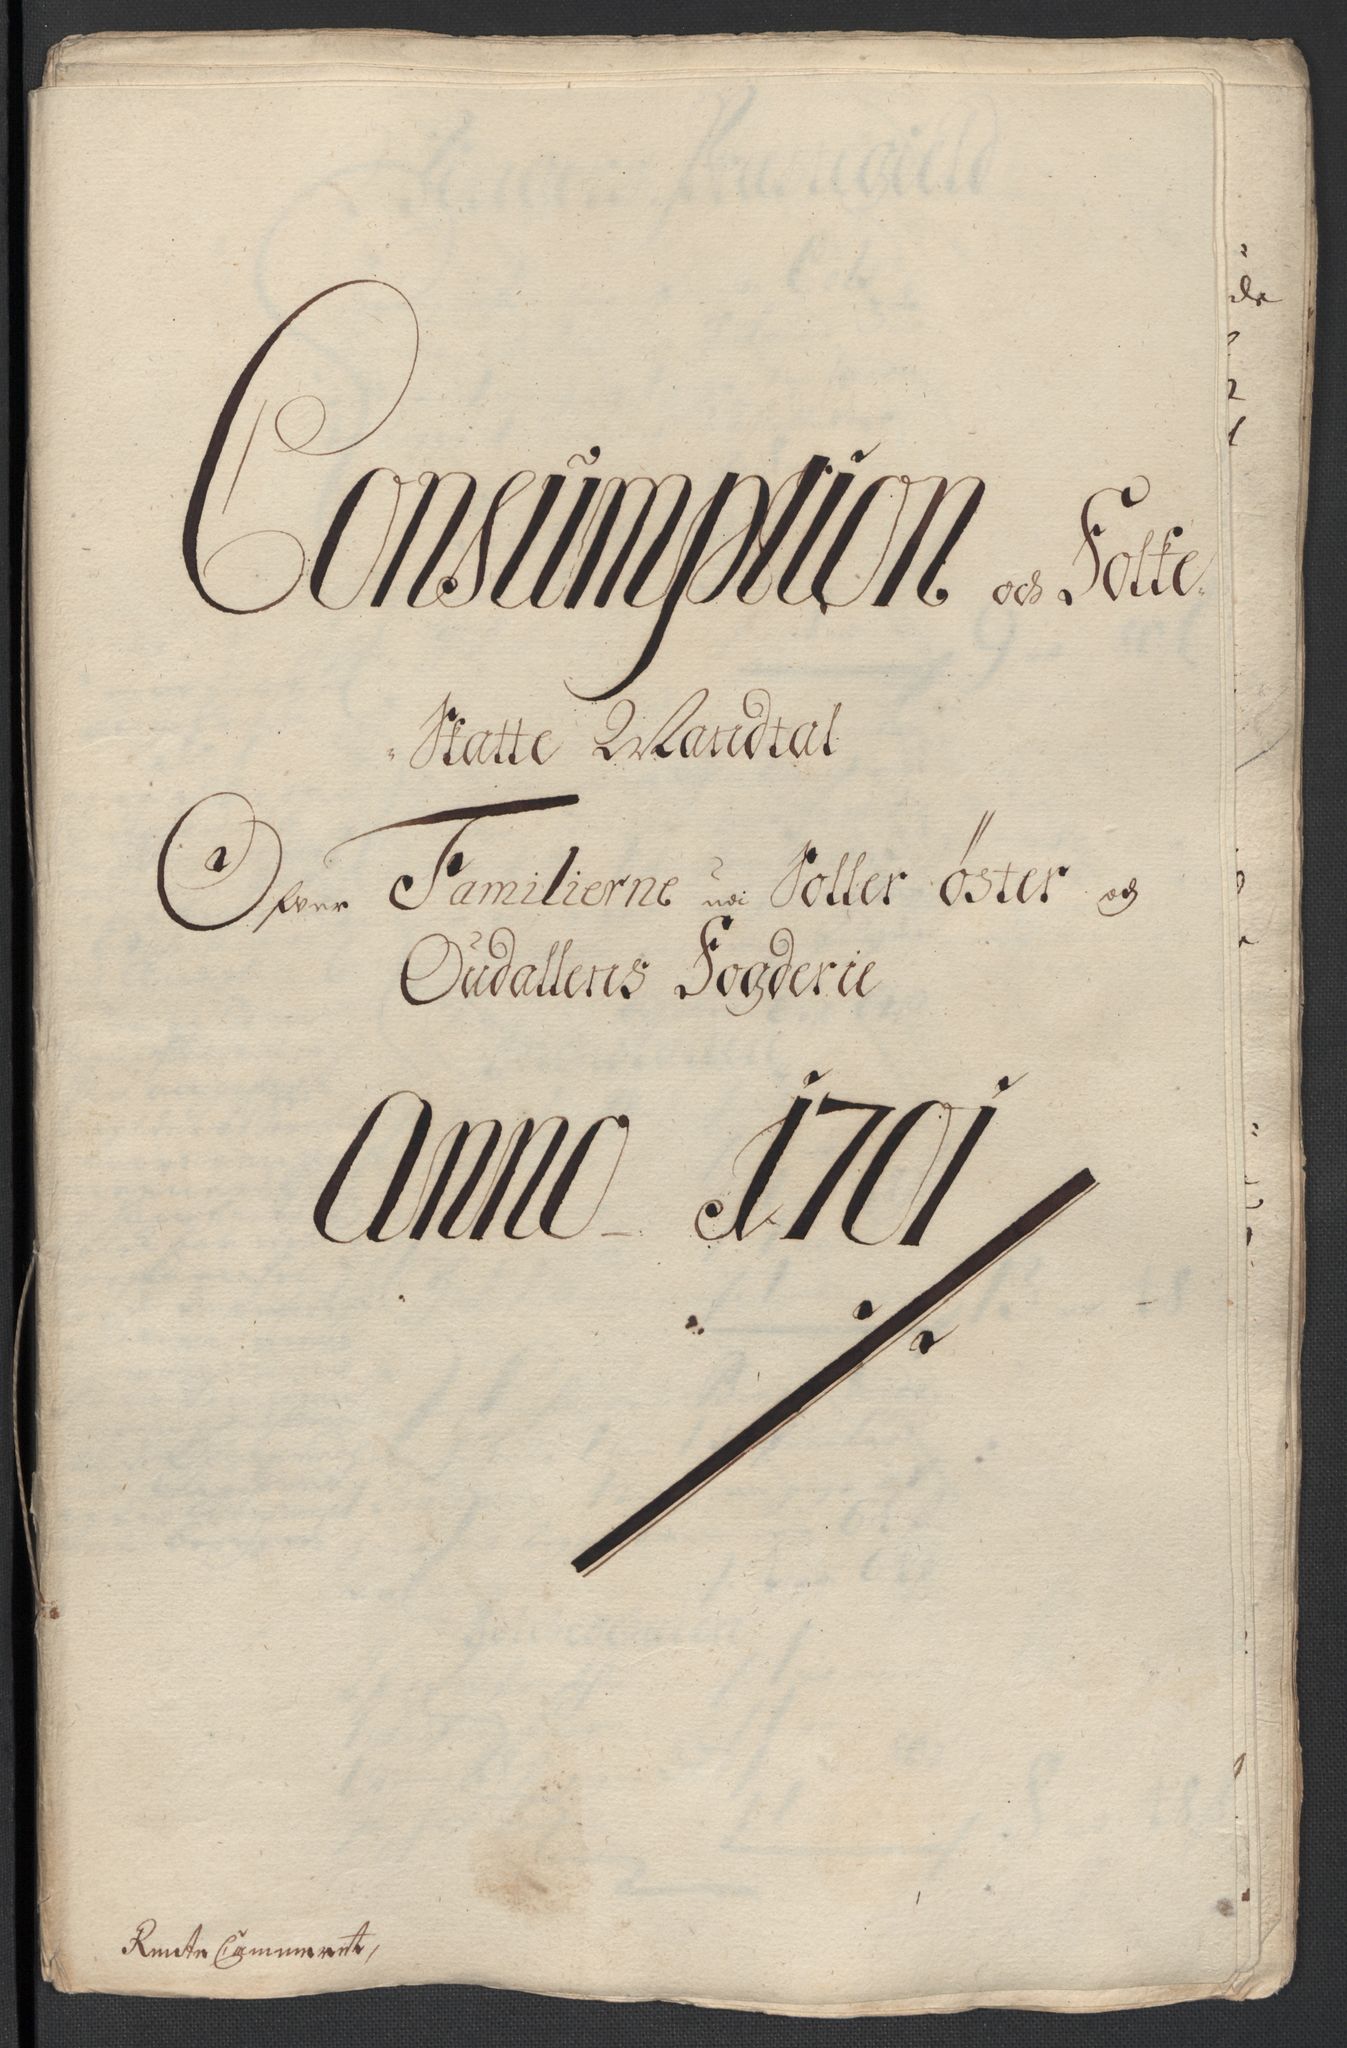 Consumption och Folke-
Skatte Mandtal
Ofver Familierne udi Soller Öster og
Oudallens Fogderie
Anno 1701
Rente Cammeret